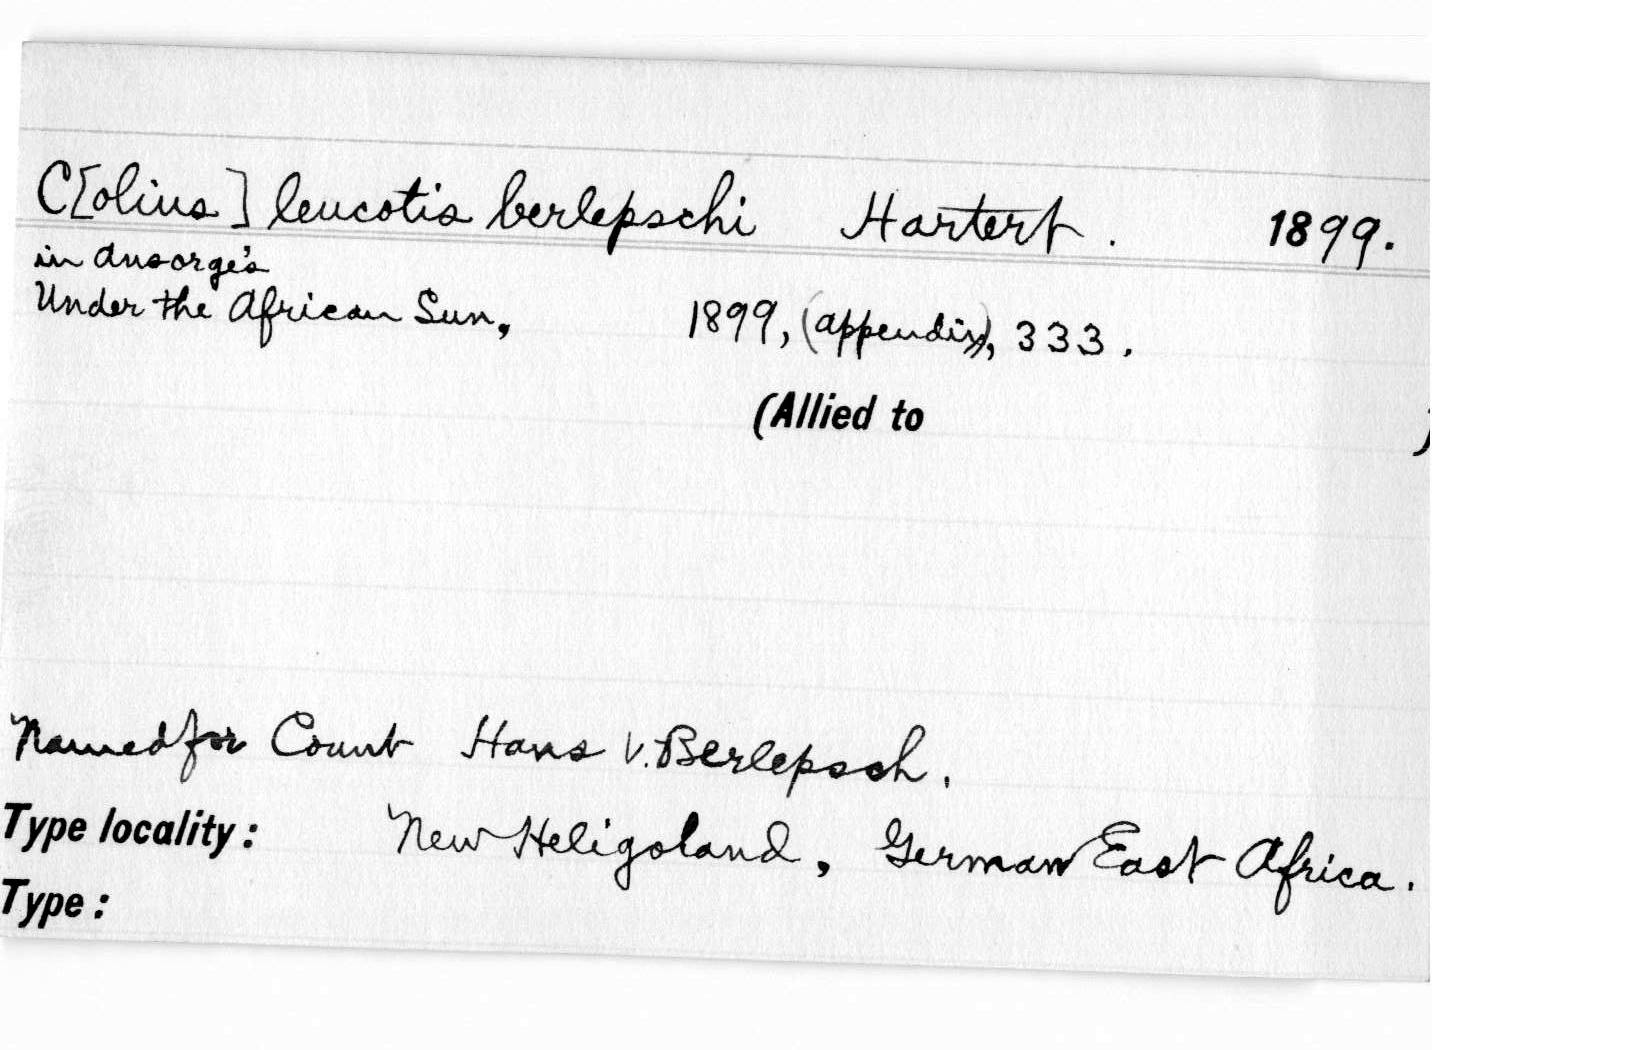 C[olius] leucotis berlepschi Hartert. 1899.
in Ansorge's
Under the African Sun, 1899, (appendix), 333.
(Allied to )
Named for Count Hans v. Berlepsch.
Type locality: New Heligoland, German East Africa.
Type: